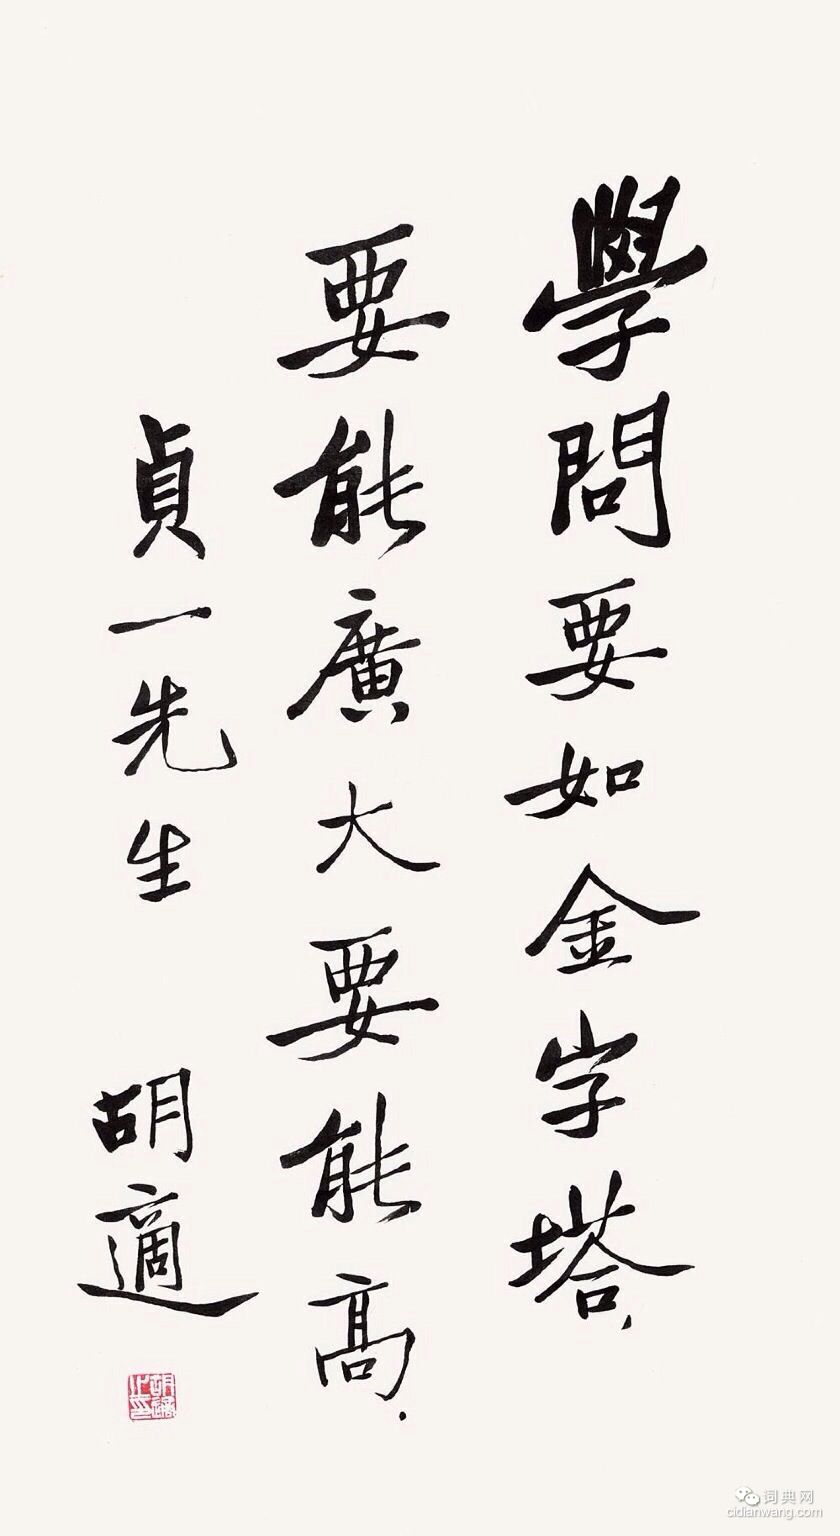 學問要如金字塔，
要能廣大要能高．
貞一先生
胡適
胡適之印
词典网
cidianwang.com